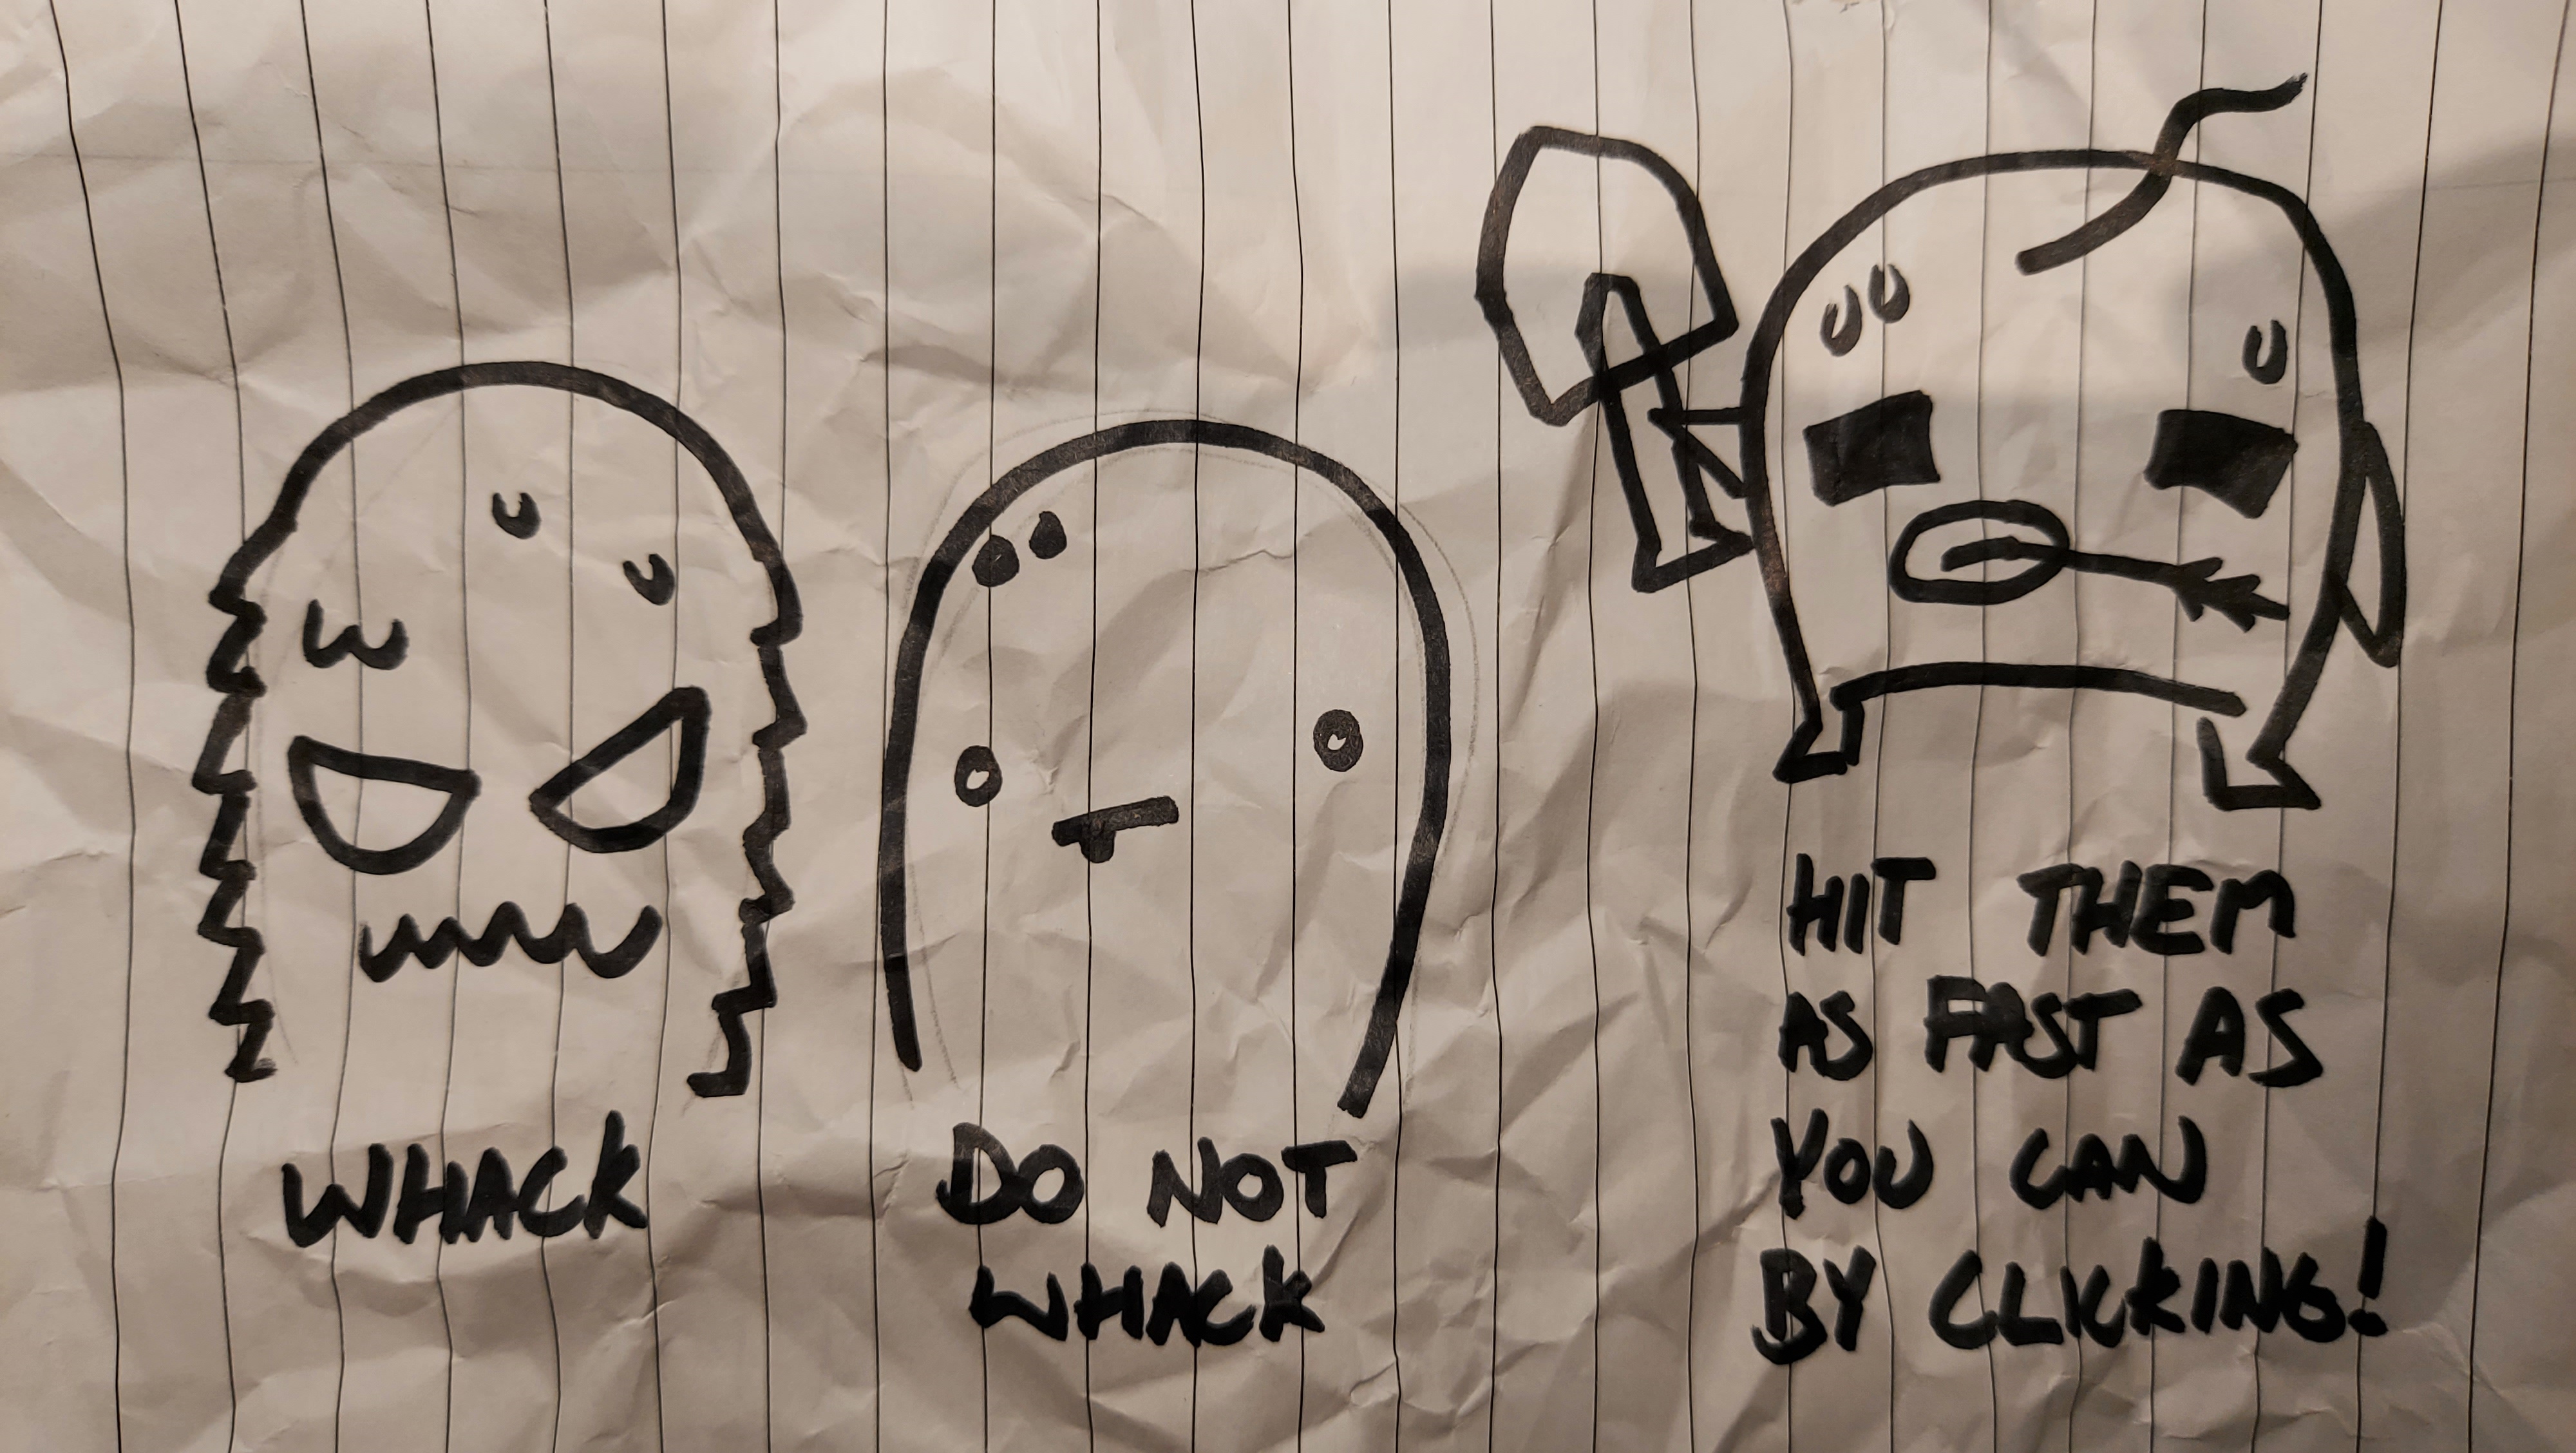 WHACK
DO NOT
WHACK
HIT THEM
AS FAST AS
YOU CAN
BY CLICKING!